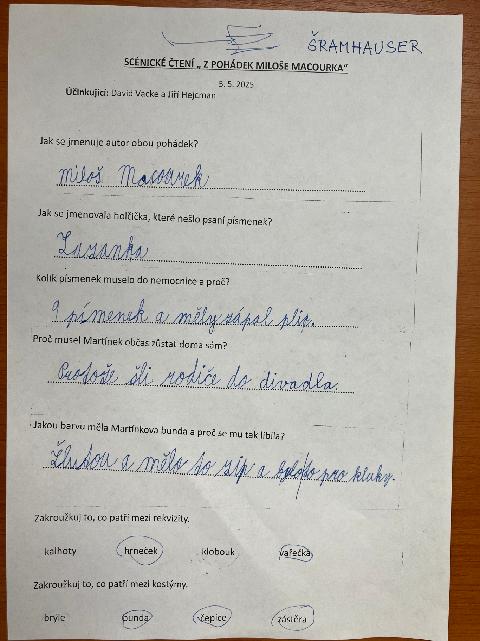 ŠRAMHAUSER
SCÉNICKÉ ČTENÍ „ Z POHÁDEK MILOŠE MACOURKA“
5. 5. 2025
Účinkující: David Vacke a Jiří Hejcman
Jak se jmenuje autor obou pohádek?
Miloš Macourek
Jak se jmenovala holčička, které nešlo psaní písmenek?
Zuzanka
Kolik písmenek muselo do nemocnice a proč?
9 písmenek a měly zápal plic.
Proč musel Martínek občas zůstat doma sám?
Protože šli rodiče do divadla.
Jakou barvu měla Martínkova bunda a proč se mu tak líbila?
Žlutou a mělo to zip a bylo pro kluky.
Zakroužkuj to, co patří mezi rekvizity.
kalhoty hrneček klobouk vařečka
Zakroužkuj to, co patří mezi kostýmy.
brýle bunda čepice zástěra